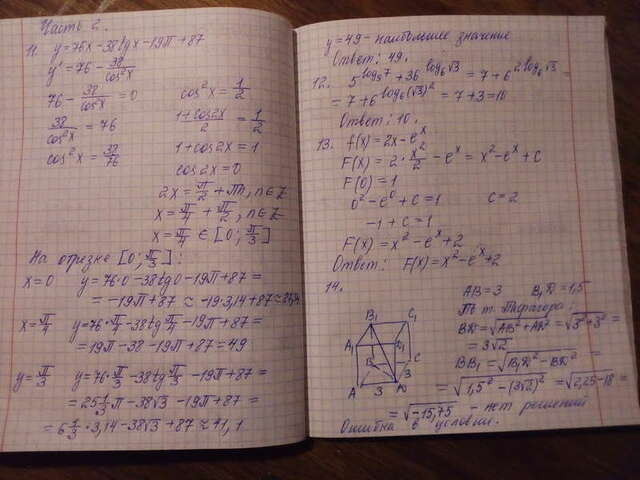 Часть 2.
11. y=76x-38tgx-19π+87
y'=76-38/cos²x
76-38/cos²x=0
38/cos²x=76
cos²x=38/76
cos²x=1/2
1+cos2x/2=1/2
1+cos2x=1
cos2x=0
2x=π/2+πn, n∈Z
x=π/4+π/2, n∈Z
x=π/4∈[0;π/3]
На отрезке [0;π/3]:
x=0 y=76·0-38tg0-19π+87=
=-19π+87≈-19·3,14+87≈
x=π/4 y=76·π/4-38tgπ/4-19π+87=
=19π-38-19π+87=49
y=π/3 y=76·π/3-38tgπ/3-19π+87=
=25 1/3·π-38√3-19π+87=
=6 1/3·3,14-38√3+87≈41,1
y=49-наибольшее значение
Ответ: 49.
12. 5^log₅7+36^log₆√3=7+6^2log₆√3=
=7+6^log₆(√3)²=7+3=10
Ответ: 10.
13. f(x)=2x-eˣ
F(x)=2·x²/2-eˣ=x²-eˣ+C
F(0)=1
0²-e⁰+C=1 C=2
-1+C=1
F(x)=x²-eˣ+2
Ответ: F(x)=x²-eˣ+2
14.
B₁ C₁
A₁
B C
3
A 3
AB=3 B₁D=1,5
По т. Пифагора:
BD=√AB²+AD²=√3²+3²=
=3√2
BB₁=√B₁D²-BD²=
=√1,5²-(3√2)²=√2,25-18=
=√-15,75 - нет решений
Ошибка в условии.